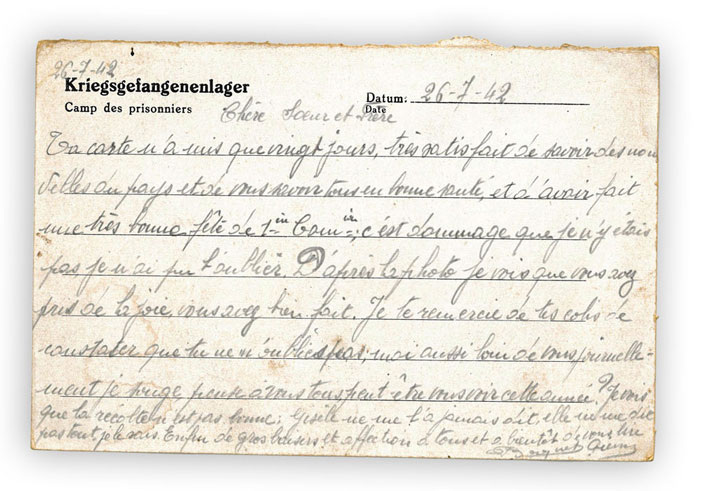 26-7-42
Kriegsgefangenenlager
Camp des prisonniers
Datum: 26-7-42
Date
Chère Sœur et Frère
Ta carte n'a mis que vingt jours, très satisfait de savoir des nou
velles du pays et de vous savoir tous en bonne santé, et d'avoir fait
une très bonne fête de 1 Com c'est dommage que je n'y étais
pas je n'ai pu l'oublier. D'après la photo je vois que vous avez
pris de la joie, vous avez bien fait. Je te remercie de tes colis de
constater que tu ne m'oublies pas, moi aussi loin de vous journelle-
ment je songe, pense à vous tous peut être vous voir cette année? Je vois
que la récolte n'est pas bonne; Gisèle ne me l'a jamais dit, elle ne me dit
pas tout je le sais. Enfin de gros baisers et affection à tous et a bientôt de vous lire